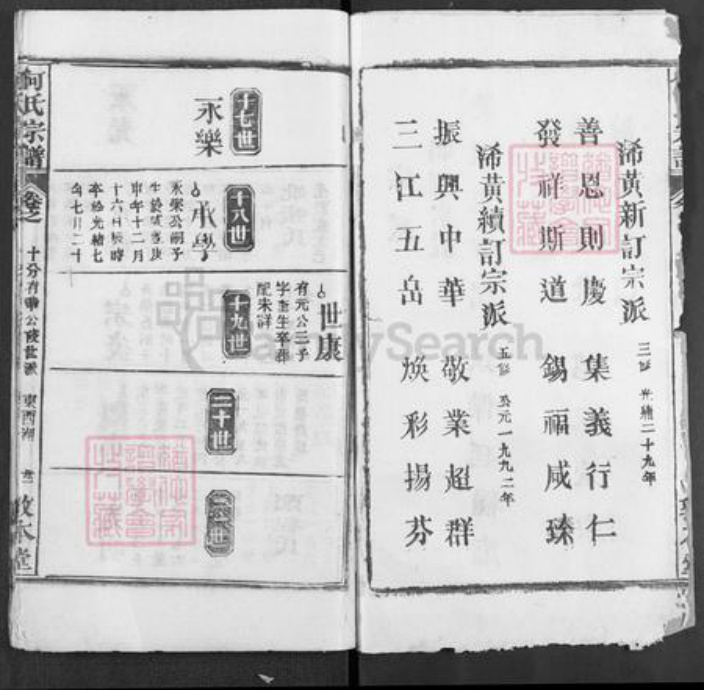 浠黄新訂宗派
三修 光緒二十九年
善恩則慶 集義行仁
發祥斯道 錫福咸臻
浠黄續訂宗派
五修 公元一九九二年
振興中華 敬業超群
三江五岳 焕彩揚芬
十七世
永樂
十八世
承學
永樂公嗣子
申年十二月
十六日辰時
卒於光緒七
年七月二十
十九世
世康
有元公三子
字奎生卒葬
配朱詳
二十世
何氏宗譜
卷之
東西湖
敦本堂
FamilySearch